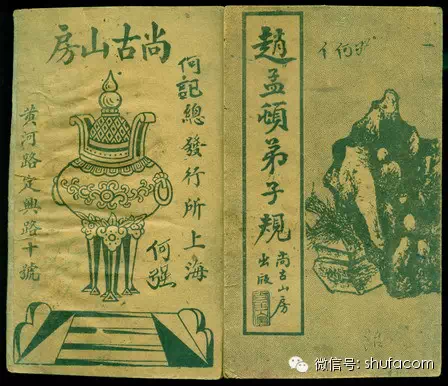 房山古尚
何記總發行所上海
何强
黃河路定興路十號
趙孟頫弟子規
尚古山房
出版
微信号: shufacom